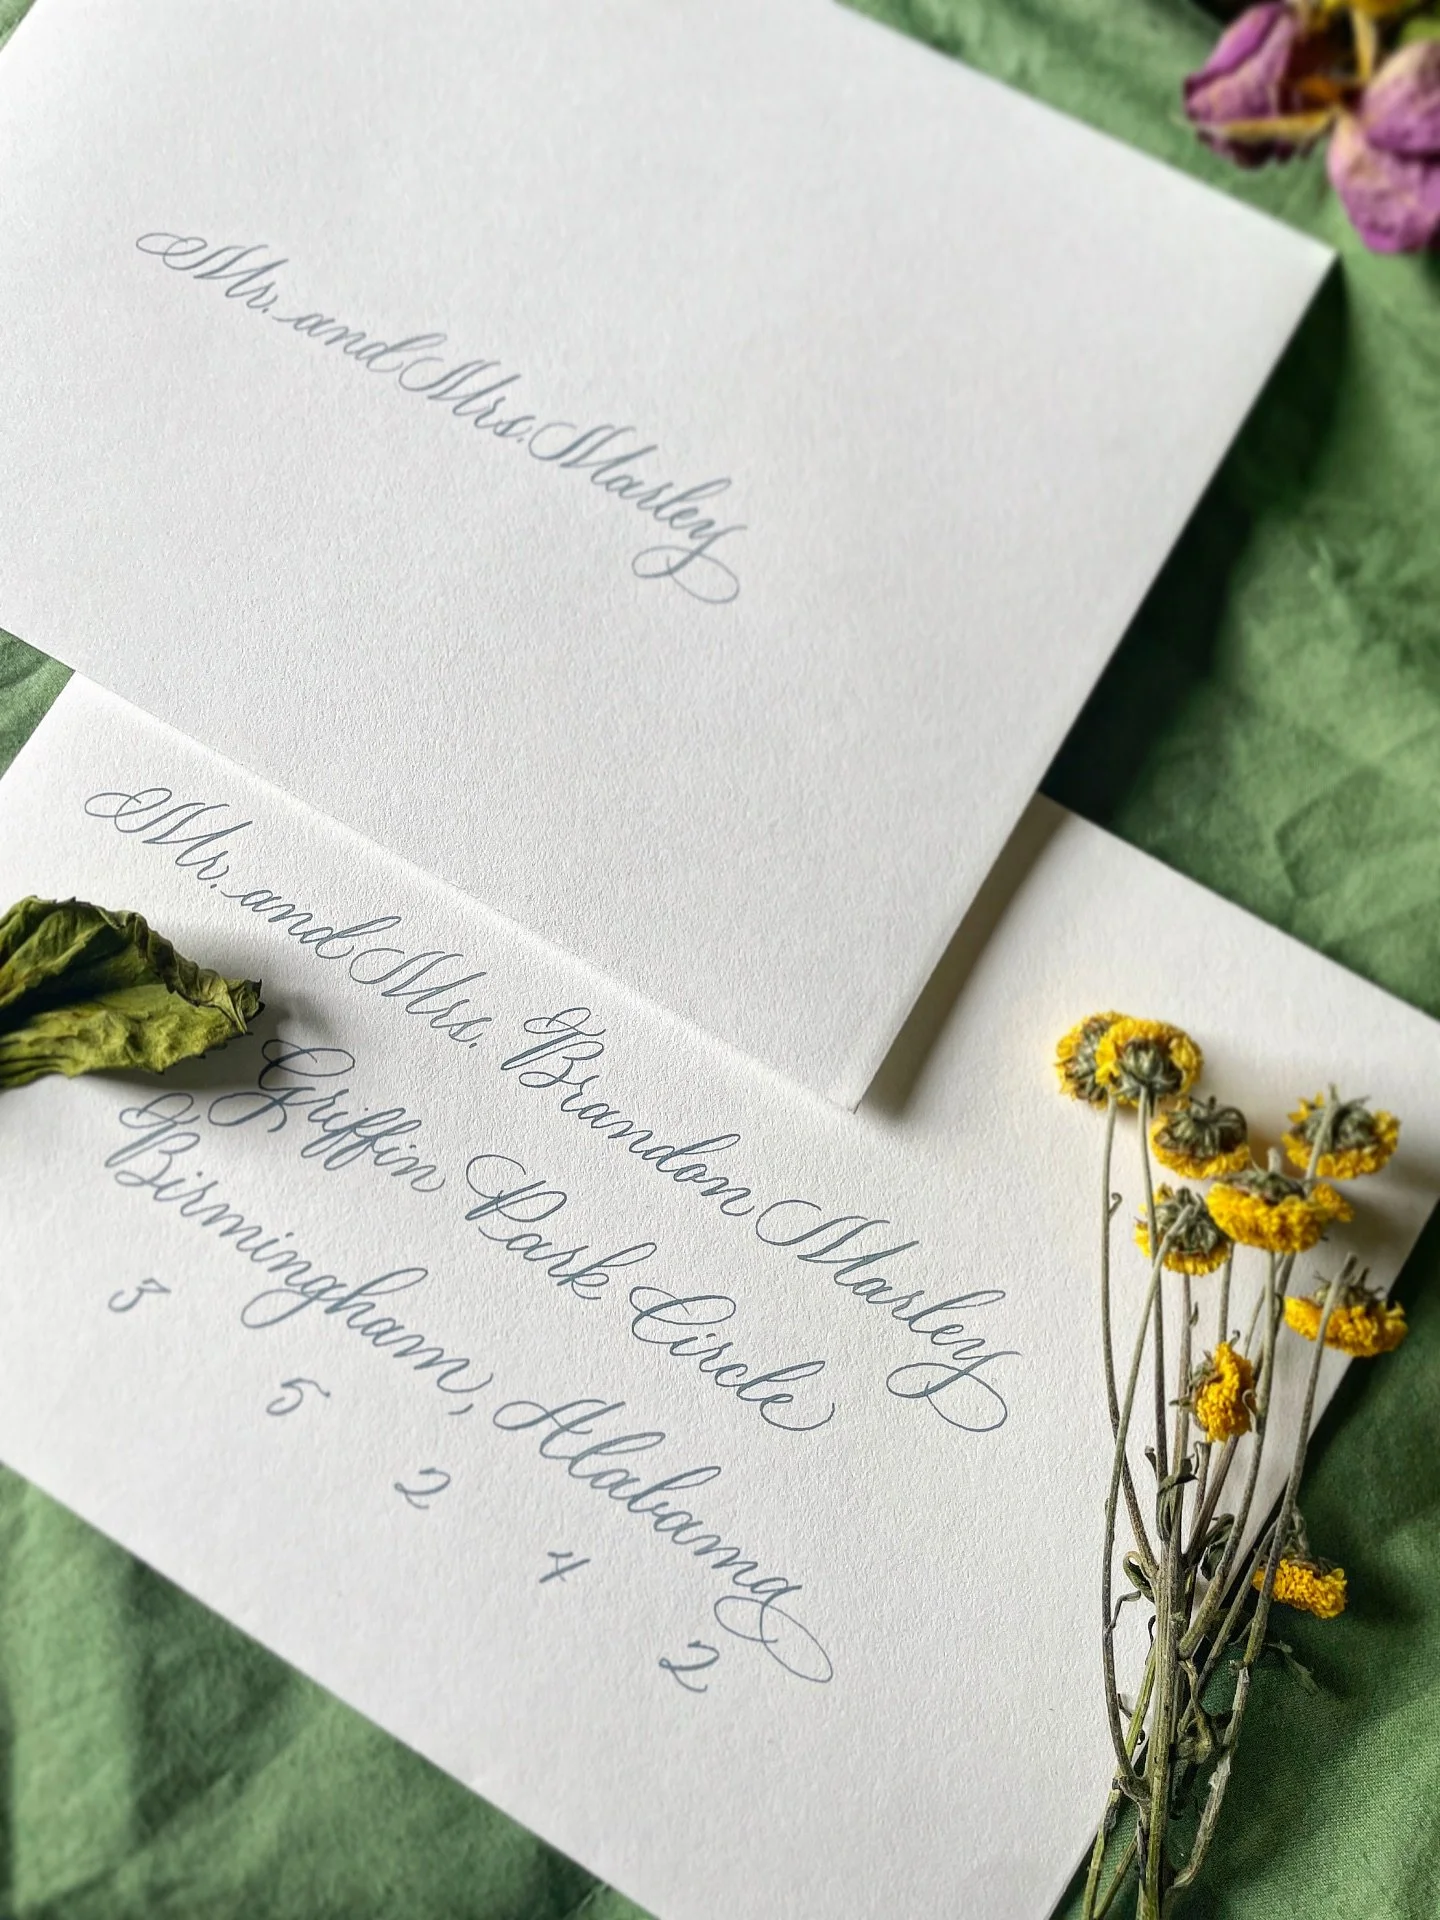 Mr. and Mrs. Marley
Mr. and Mrs. Brandon Marley
Griffin Park Circle
Birmingham, Alabama
3 5 2 4 2